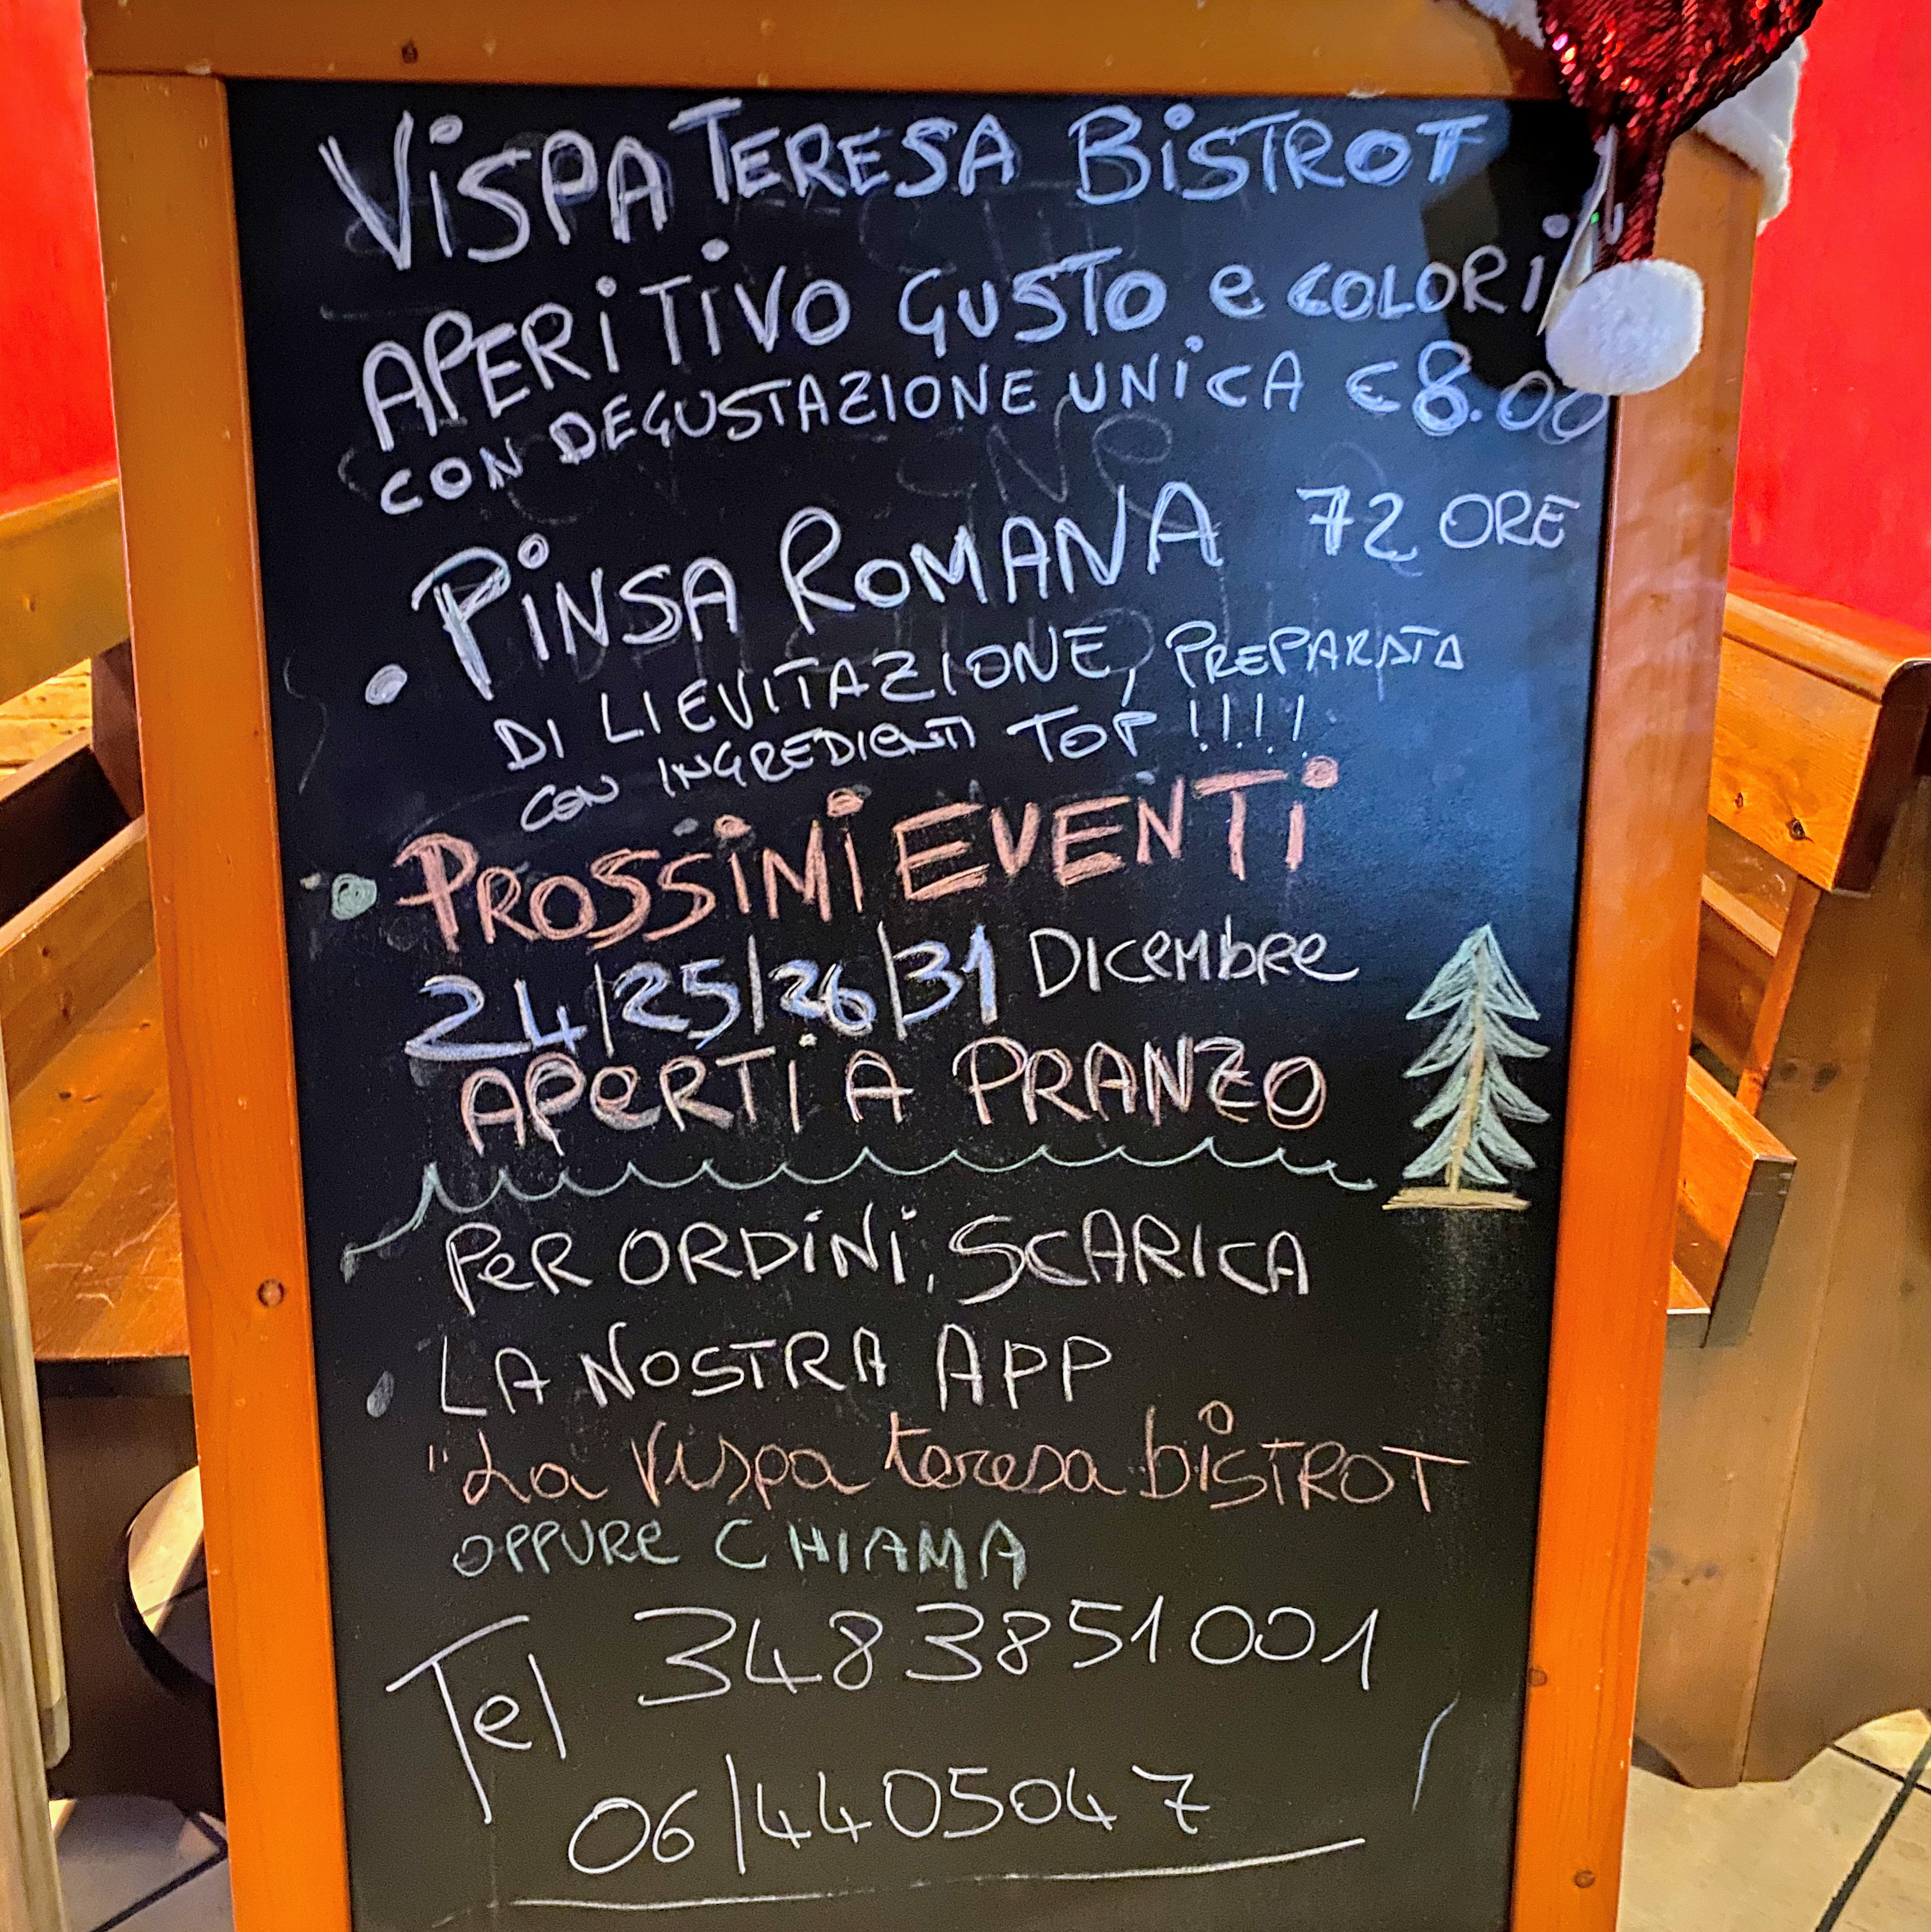 ViSPA TERESA BiSTROT
APERiTiVO GUSTO e COLORi
CON DEGUSTAZIONE UNiCA € 8.00
• PiNSA ROMANA 72 ORE
DI LIEVITAZIONE, PREPARATA
CON INGREDIENTI TOP !!!!
• PROSSiMi EVENTi
24/25/26/31 DICembre
APeRTi A PRANZO
PeR ORDiNi, SCARICA
• LA NOSTRA APP
"La Vispa teresa biSTROT
OPPURe CHIAMA
Tel 3483851001
06/4405047